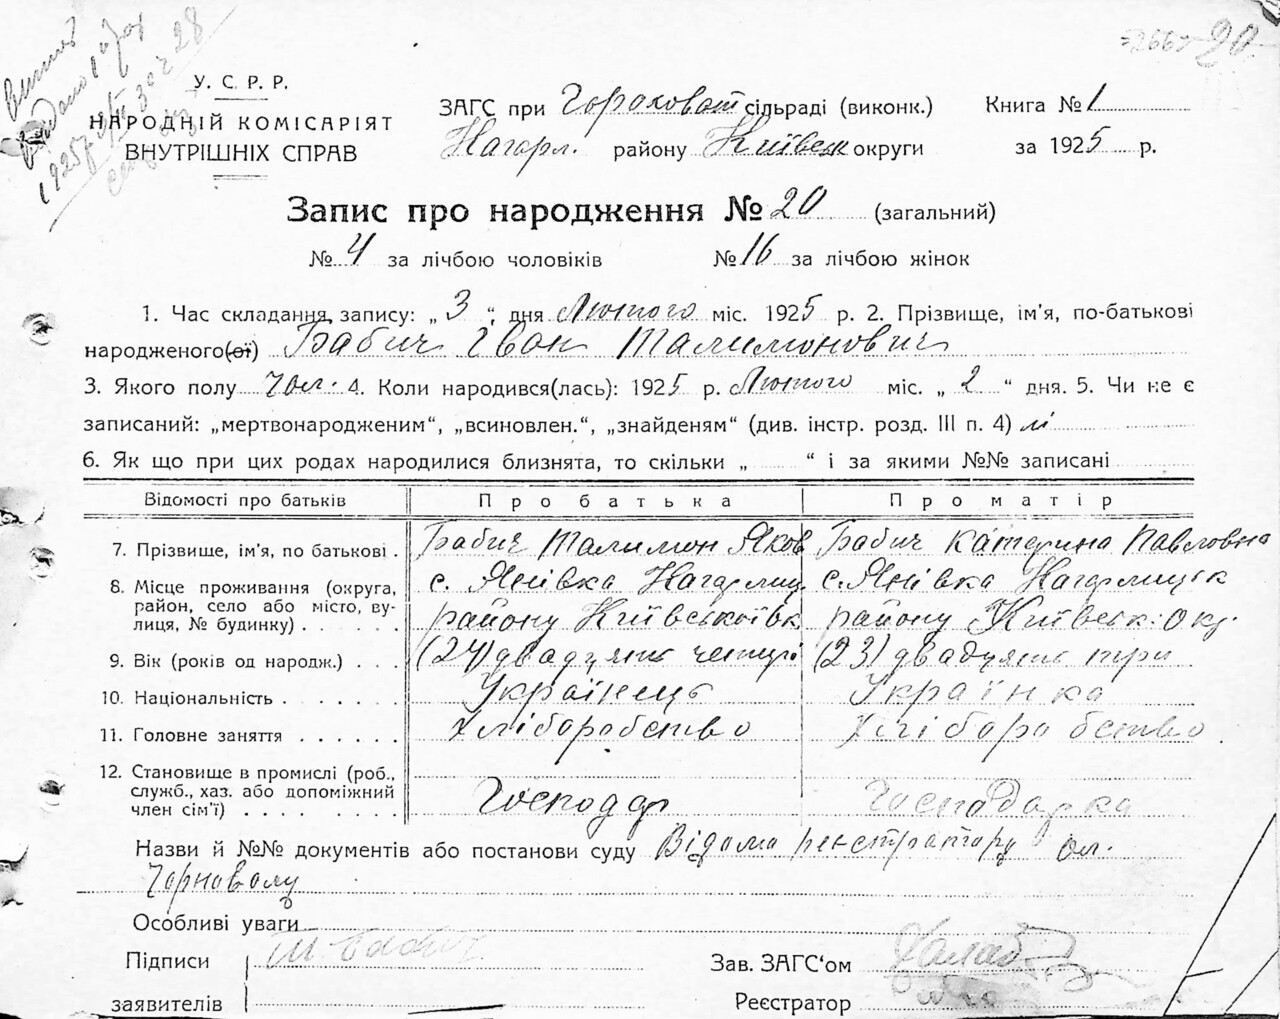 У. С. Р. Р.
НАРОДНІЙ КОМІСАРІЯТ
ВНУТРІШНІХ СПРАВ
ЗАГС при Гороховат сільраді (виконк.)
Нагорл. району Київськ округи
Книга № 1
за 1925 р.
20
Запис про народження № 20 (загальний)
№ 4 за лічбою чоловіків № 16 за лічбою жінок
1. Час складання запису: „ 3 “ дня Лютого міс. 1925 р. 2. Прізвище, ім'я, по-батькові
народженого(ої) Бабич Іван Талимонович
3. Якого полу чол. 4. Коли народився(лась): 1925 р. Лютого міс. „ 2 “ дня. 5. Чи не є
записаний: „мертвонародженим“, „всиновлен.“, „знайденям“ (див. інстр. розд. III п. 4) ні
6. Як що при цих родах народилися близнята, то скільки „ “ і за якими №№ записані
Відомості про батьків Про батька Про матір
7. Прізвище, ім'я, по батькові . Бабич Талимон Яков Бабич Катерина Павловна
8. Місце проживання (округа, район, село або місто, вулиця, № будинку) . . . . . .
с. Янівка Нагорлиц с. Янівка Нагорлицьк
району Київської району Київськ. окр.
9. Вік (років од народж.) . . . (24) двадцять чотирі (23) двадцять три
10. Національність . . . . . . . Українець Українка
11. Головне заняття . . . . . . Хліборобство Хліборобство
12. Становище в промислі (роб., служб., хаз. або допоміжний член сім'ї) . . . . . . . . Господар Господарка
Назви й №№ документів або постанови суду Відома реєстратору Ол.
Чорноволу
Особливі уваги
Підписи
заявителів
Т. Бабич
Зав. ЗАГС‘ом
Реєстратор